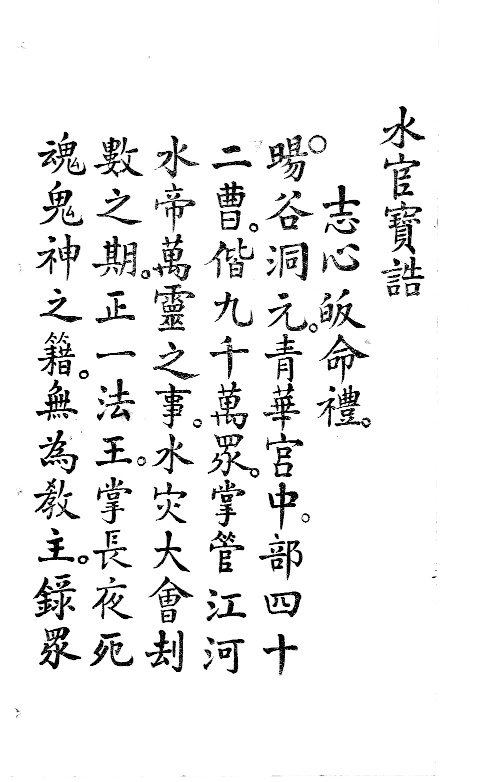 水官寳誥
志心皈命禮。
暘谷洞元。青華宮中。部四十
二曹。偕九千萬眾。掌管江河
水帝萬靈之事。水灾大會刦
數之期。正一法王。掌長夜死
魂鬼神之籍。無為教主。錄眾